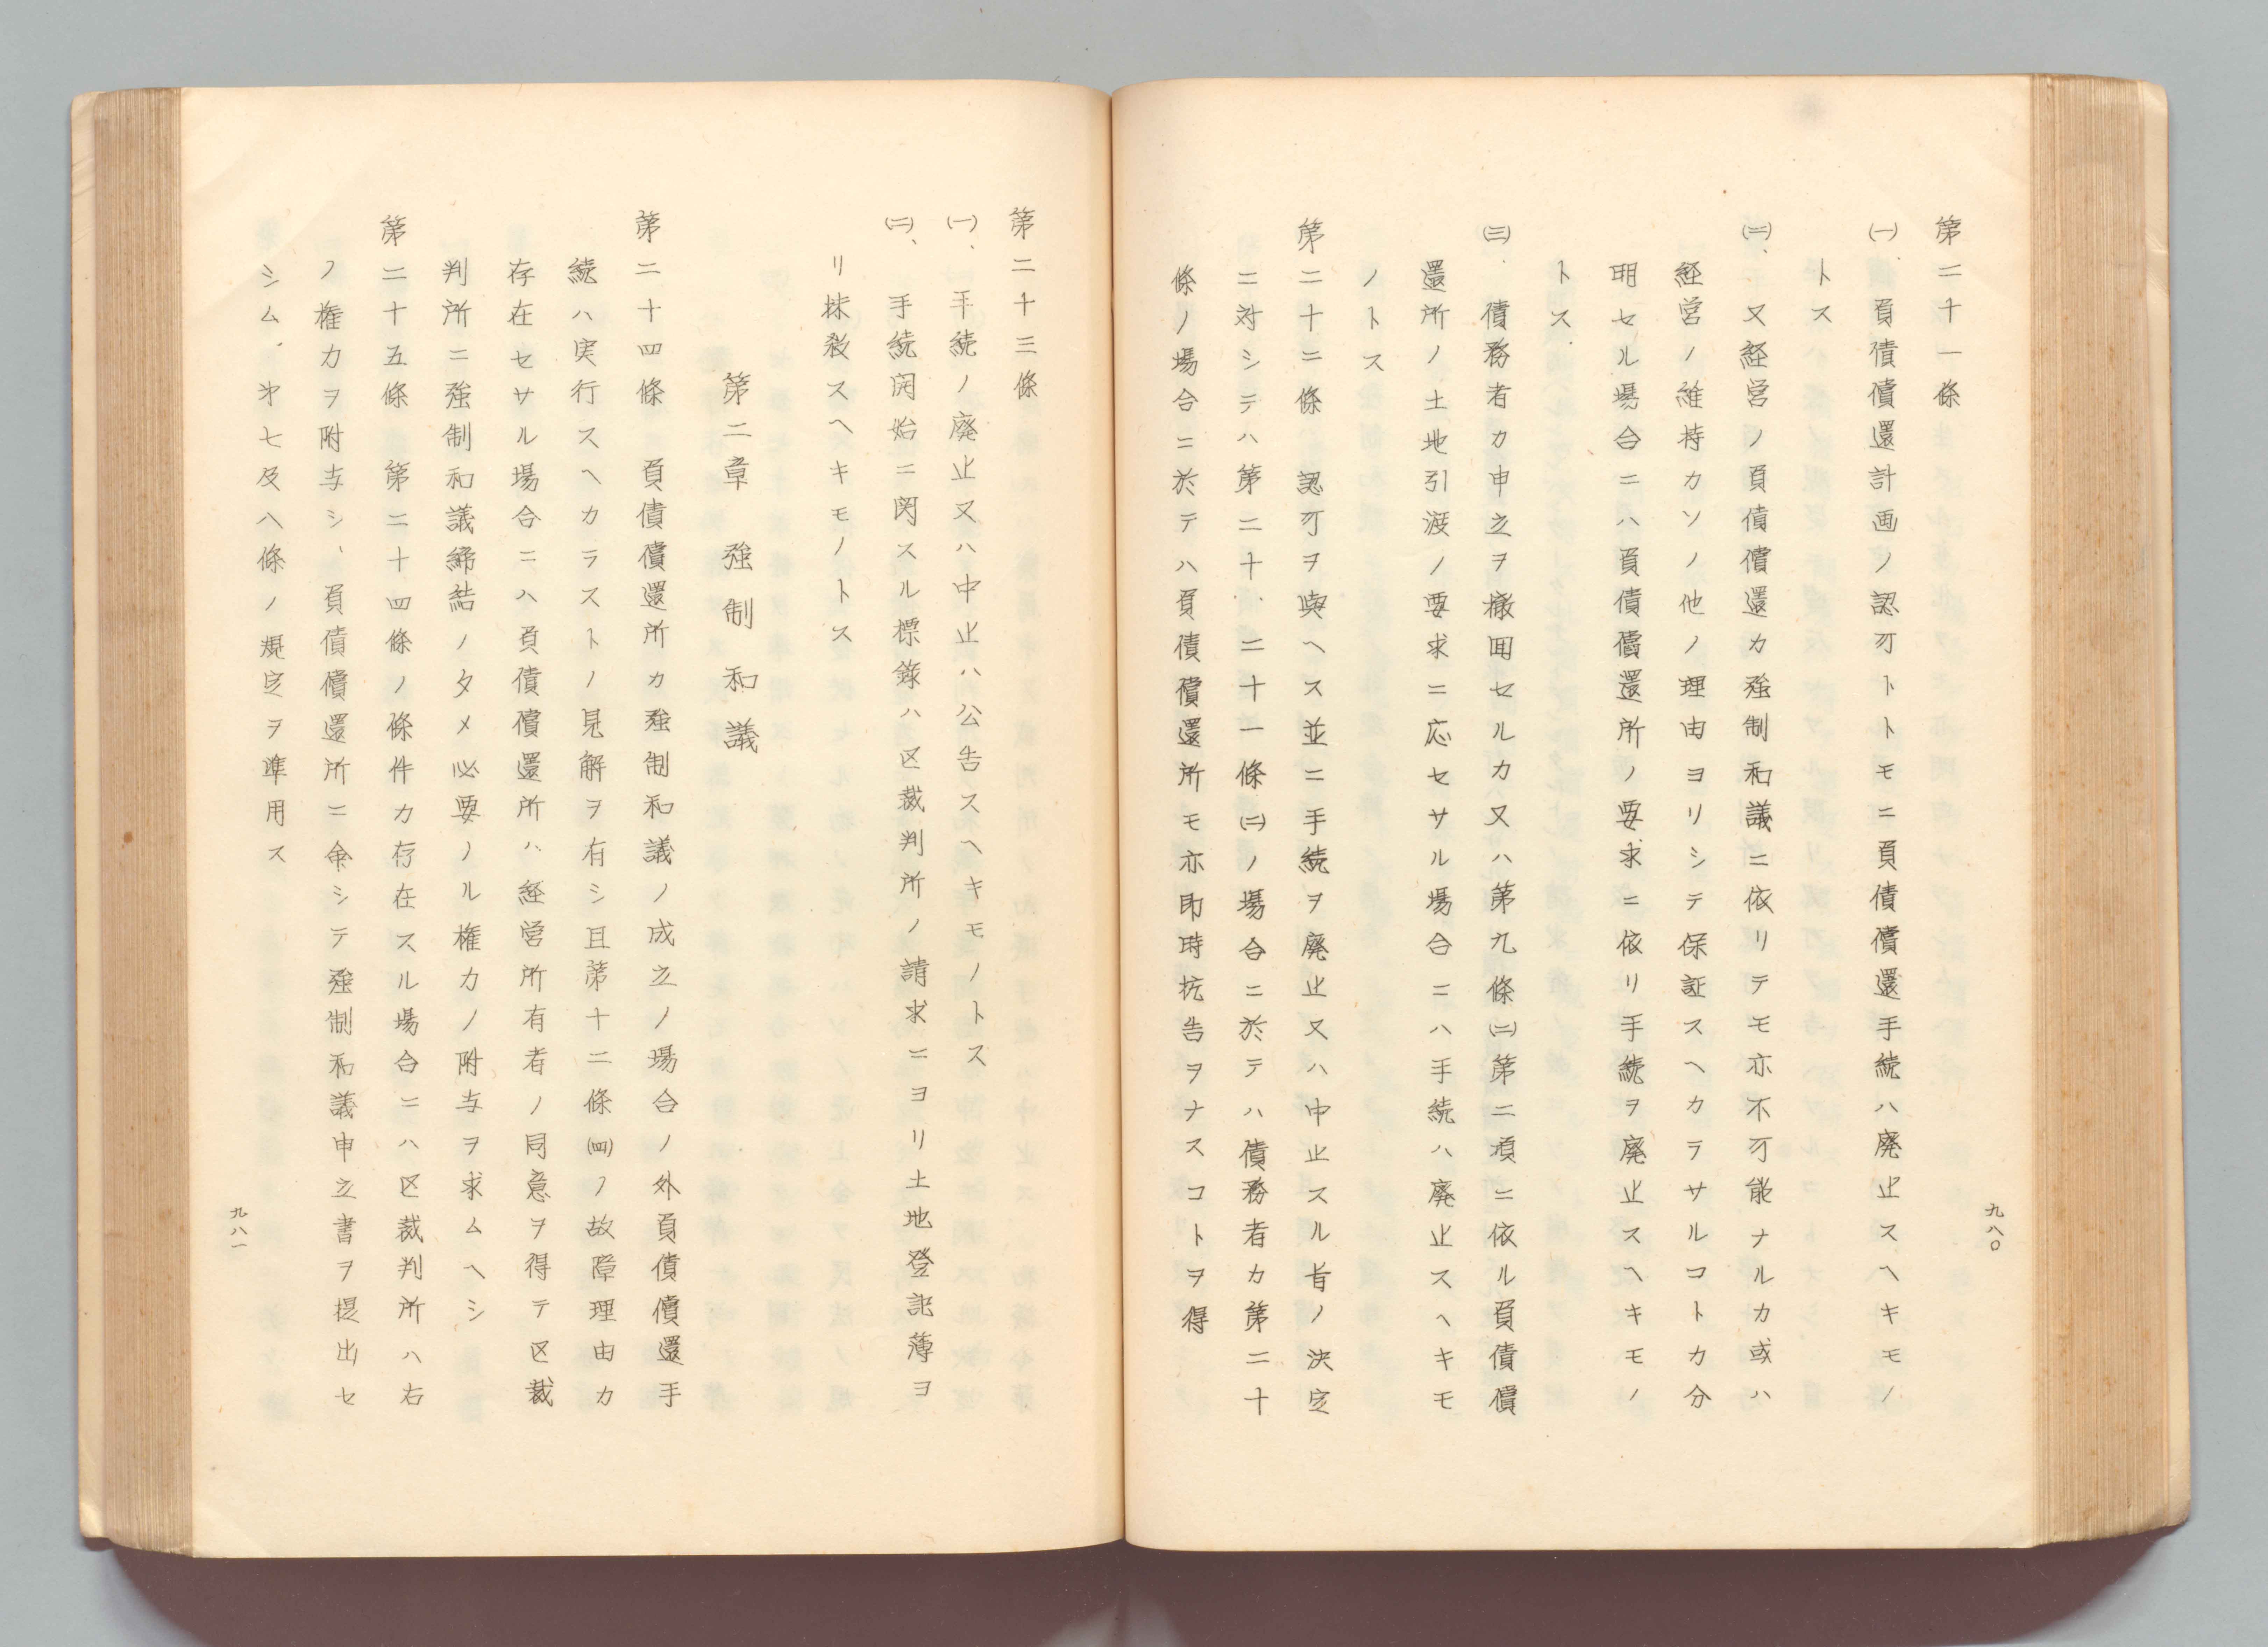 第二十一條
㈠、負債償還計画ノ認可トトモニ負債償還手続ハ廃止スヘキモノ
トス
㈡、又経営ノ負債償還カ強制和議ニ依リテモ亦不可能ナルカ或ハ
経営ノ維持カソノ他ノ理由ヨリシテ保証スヘカラサルコトカ分
明セル場合ニハ負債償還所ノ要求ニ依リ手続ヲ廃止スヘキモノ
トス
㈢、債務者カ申立ヲ撤回セルカ又ハ第九條㈡第二項ニ依ル負債償
還所ノ土地引渡ノ要求ニ応セサル場合ニハ手続ハ廃止スヘキモ
ノトス
第二十二條　認可ヲ与ヘス並ニ手続ヲ廃止又ハ中止スル旨ノ決定
ニ対シテハ第二十、二十一條㈡ノ場合ニ於テハ債務者カ第二十
條ノ場合ニ於テハ負債償還所モ亦即時抗告ヲナスコトヲ得
九八〇
第二十三條
㈠、手続ノ廃止又ハ中止ハ公告スヘキモノトス
㈡、手続開始ニ関スル標錄ハ区裁判所ノ請求ニヨリ土地登記薄ヨ
リ抹殺スヘキモノトス
第二章　強制和議
第二十四條　負債償還所カ強制和議ノ成立ノ場合ノ外負債償還手
続ハ実行スヘカラストノ見解ヲ有シ且第十二條㈣ノ故障理由カ
存在セサル場合ニハ負債償還所ハ経営所有者ノ同意ヲ得テ区裁
判所ニ強制和議締結ノタメ必要ノル権カノ附与ヲ求ムヘシ
第二十五條　第二十四條ノ條件カ存在スル場合ニハ区裁判所ハ右
ノ権カヲ附与シ、負債償還所ニ命シテ強制和議申立書ヲ提出セ
シム、才七及八條ノ規定ヲ準用ス
九八一